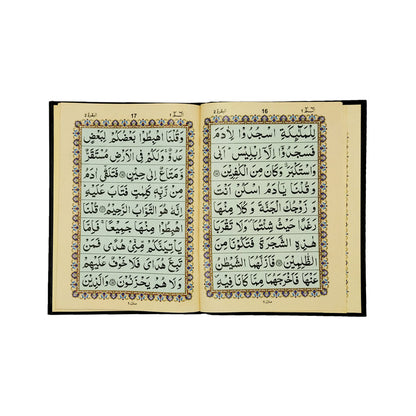 16
لِلْمَلٰٓئِكَةِ اسْجُدُوْا لِاٰدَمَ
فَسَجَدُوْٓا اِلَّآ اِبْلِيْسَ ؕ اَبٰى
وَاسْتَكْبَرَ ۫ وَكَانَ مِنَ الْكٰفِرِيْنَ
وَقُلْنَا يٰٓاٰدَمُ اسْكُنْ اَنْتَ
وَ زَوْجُكَ الْجَنَّةَ وَ كُلَا مِنْهَا
رَغَدًا حَيْثُ شِئْتُمَا ۪ وَلَا تَقْرَبَا
هٰذِهِ الشَّجَرَةَ فَتَكُوْنَا مِنَ
الظّٰلِمِيْنَ فَاَزَلَّهُمَا الشَّيْطٰنُ
عَنْهَا فَاَخْرَجَهُمَا مِمَّا كَانَا فِيْهِ
17
وَ قُلْنَا اهْبِطُوْا بَعْضُكُمْ لِبَعْضٍ
عَدُوٌّ ۚ وَلَكُمْ فِى الْاَرْضِ مُسْتَقَرٌّ
وَّ مَتَاعٌ اِلٰى حِيْنٍ فَتَلَقّٰٓى اٰدَمُ
مِنْ رَّبِّهٖ كَلِمٰتٍ فَتَابَ عَلَيْهِ ؕ
اِنَّهٗ هُوَ التَّوَّابُ الرَّحِيْمُ قُلْنَا
اهْبِطُوْا مِنْهَا جَمِيْعًا ۚ فَاِمَّا
يَاْتِيَنَّكُمْ مِّنِّيْ هُدًى فَمَنْ
تَبِعَ هُدَاىَ فَلَا خَوْفٌ عَلَيْهِمْ
وَ لَا هُمْ يَحْزَنُوْنَ وَالَّذِيْنَ